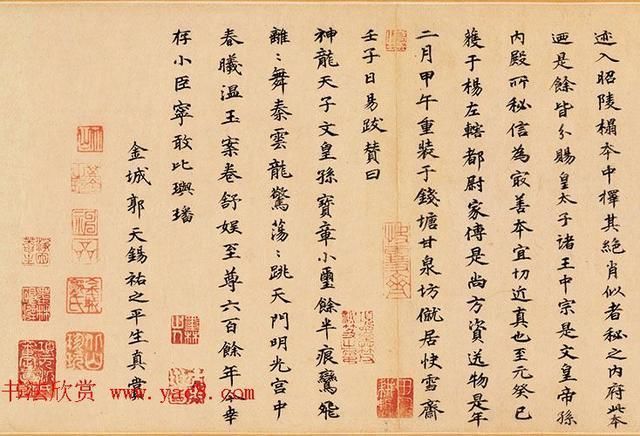 迹入昭陵榻本中擇其絕肖似者秘之內府此本
迺是餘皆分賜皇太子諸王中宗是文皇帝孫
內殿所秘信為寂善本宜切近真也至元癸巳
獲于楊左轄都尉家傳是尚方資送物是年
二月甲午重裝于錢塘甘泉坊僦居快雪齋
壬子日易跋贊曰
神龍天子文皇孫寶章小璽餘半痕鸞飛
離〻舞秦雲龍驚蕩〻跳天門明光宮中
春曦温玉案卷舒娱至尊六百餘年今幸
存小臣寧敢比璵璠
金城郭天錫祐之平生真賞
书法欣赏 www.yac8.com